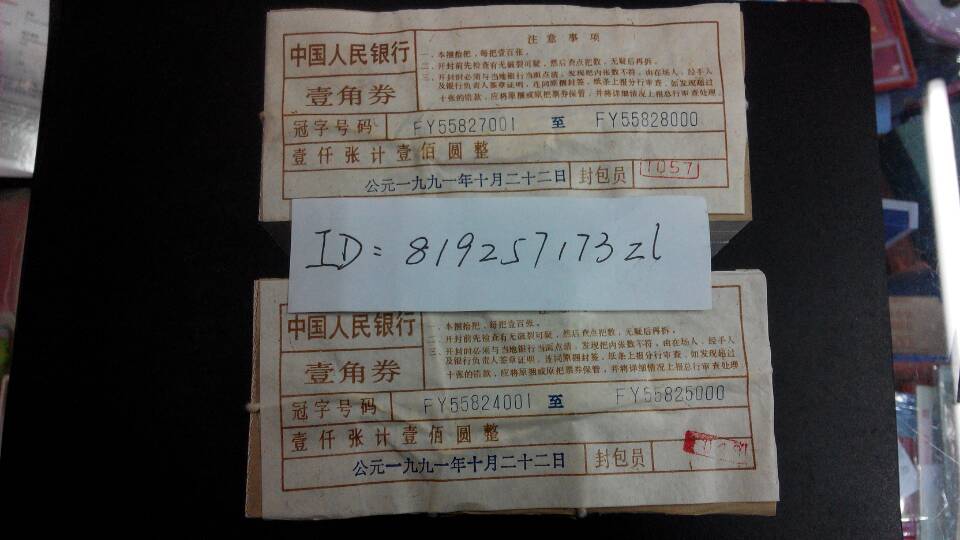 中国人民银行
壹角券
注意事项
一、本捆拾把，每把壹百张。
二、开封前先检查有无破裂可疑，然后查点把数，无疑后再拆。
三、开封时必须与当地银行当面点清，发现把内张数不符，由在场人、经手人
及银行负责人签章证明，连同原捆封签，纸条上报分行审查，如发现超过
十张的错款，应将原捆或原把票券保管，并将详细情况上报总行审查处理
冠字号码 FY55827001 至 FY55828000
壹仟张计壹佰圆整
公元一九九一年十月二十二日 封包员 1057
ID=819257173zl
中国人民银行
壹角券
一、本捆拾把，每把壹百张。
二、开封前先检查有无破裂可疑，然后查点把数，无疑后再拆。
三、开封时必须与当地银行当面点清，发现把内张数不符，由在场人、经手人
及银行负责人签章证明，连同原捆封签，纸条上报分行审查，如发现超过
十张的错款，应将原捆或原把票券保管，并将详细情况上报总行审查处理
冠字号码 FY55824001 至 FY55825000
壹仟张计壹佰圆整
公元一九九一年十月二十二日 封包员